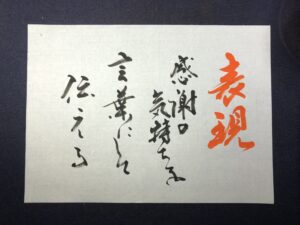 表現
感謝の
気持ちを
言葉にして
伝える